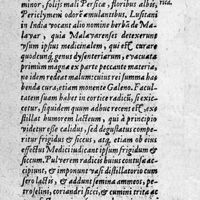 minor, folijs mali Persica, floribus albis,
Periclymeni odorẽ æmulantibus, Lusitani
in India vocant alio nomine herbã de Ma-
lauar, quia Malauarenses detexerunt
vsum ipsius medicinalem, qui est curare
quodcunq; genus dysenteriarum, euacuata
primùm magna ex parte peccante materia,
qd idem redeat malum: cuius rei summa ha-
benda cura, etiam monente Galeno. Facul-
tatem suam habet in cortice radicis, si exic-
cetur, siquidem quum adhuc recens est, ex-
stillat humorem lacteum, qui à principio
videtur esse calidus, sed degustatus compe-
ritur frigidus & siccus, atq; etiam ob eius
effectus Medici iudicant ipsum frigidum &
siccum. Puluerem radicis huius contusæ ac-
cipiunt, & imponunt vasi distillatorio cum
sero lactis, & addunt semina ammeos, pe-
troselini, coriandri sicci, & cumini trita ac